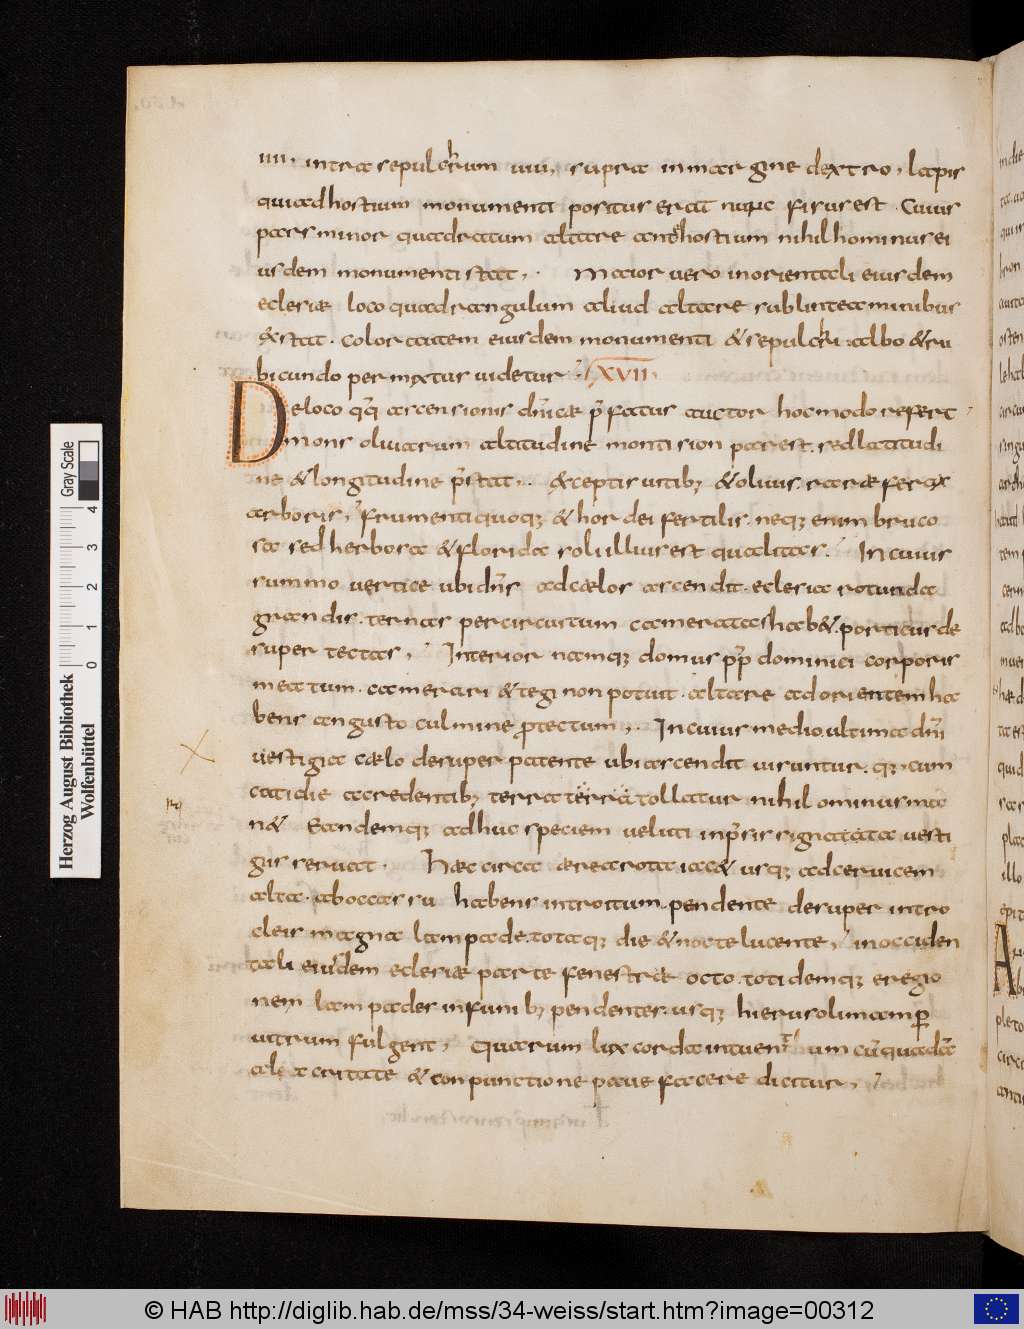 IIII. intra sepulcrum VIII, supra in margine dextro, lapis
qui ad hostium monumenti positus erat nunc fisus est. Cuius
pars minor quadratum altare ante hostium nihilhominus ei
usdem monumenti stat,. Maior uero in orientali eiusdem
eclesiæ loco quadrangulum aliud altare sub linteaminibus
&stat. color autem eiusdem monumenti & sepulcri albo & ru
bicundo permixtus uidetur. XVII
De loco q̄q ascensionis dn̄icæ p̄fatus auctor hoc modo refert
mons oliuarum altitudine monti sion par est. sed latitudi
ne & longitudine p̄stat,. exceptis uitib; & oliuis. raræ ferax
arboris, frumenti quoq; & hordei fertilis. neq; enim bruco
sa sed herbosa & florida soli illius est qualitas. In cuius
summo uertice ubi dn̄s ad cælos ascendit. eclesia rotunda
grandis. ternas per circuitum cameratas hab&. porticus de
super tectas, Interior namq; domus pp̄ dominici corporis
meatum. camerari & tegi non potuit. altare ad orientem ha
bens angusto culmine protectum,. In cuius medio ultima dn̄i
uestigia cælo desuper patente ubi ascendit uisuntur. q; cum
cotidie a credentib; terra terra tollatur nihilominus ma
n& Eandemq; adhuc speciem ueluti inp̄ssis signata uesti
giis seruat. Hæc circa ærea rota iac& usq; ad ceruicem
alta. ab occasu habens introitum. pendente desuper in tro
cleis magna lampade. totaq; die & nocte lucente, in occiden
tali eiusdem eclesiæ parte fenestræ octo. totidemq; e regio
nem lampades in funib; pendentes. usq; hierusolimam p
uitrum fulgent, Quarum lux corda intuentium cū quadā
alacritate & conpunctione paue facere dicitur,
Herzog August Bibliothek
Wolfenbüttel
Gray Scale
0 1 2 3 4
© HAB http://diglib.hab.de/mss/34-weiss/start.htm?image=00312